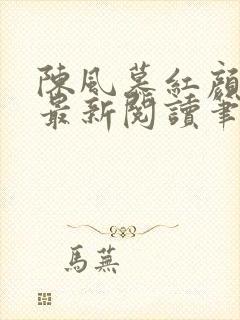 陳風慕紅顏
最新閱讀筆
馬蕪